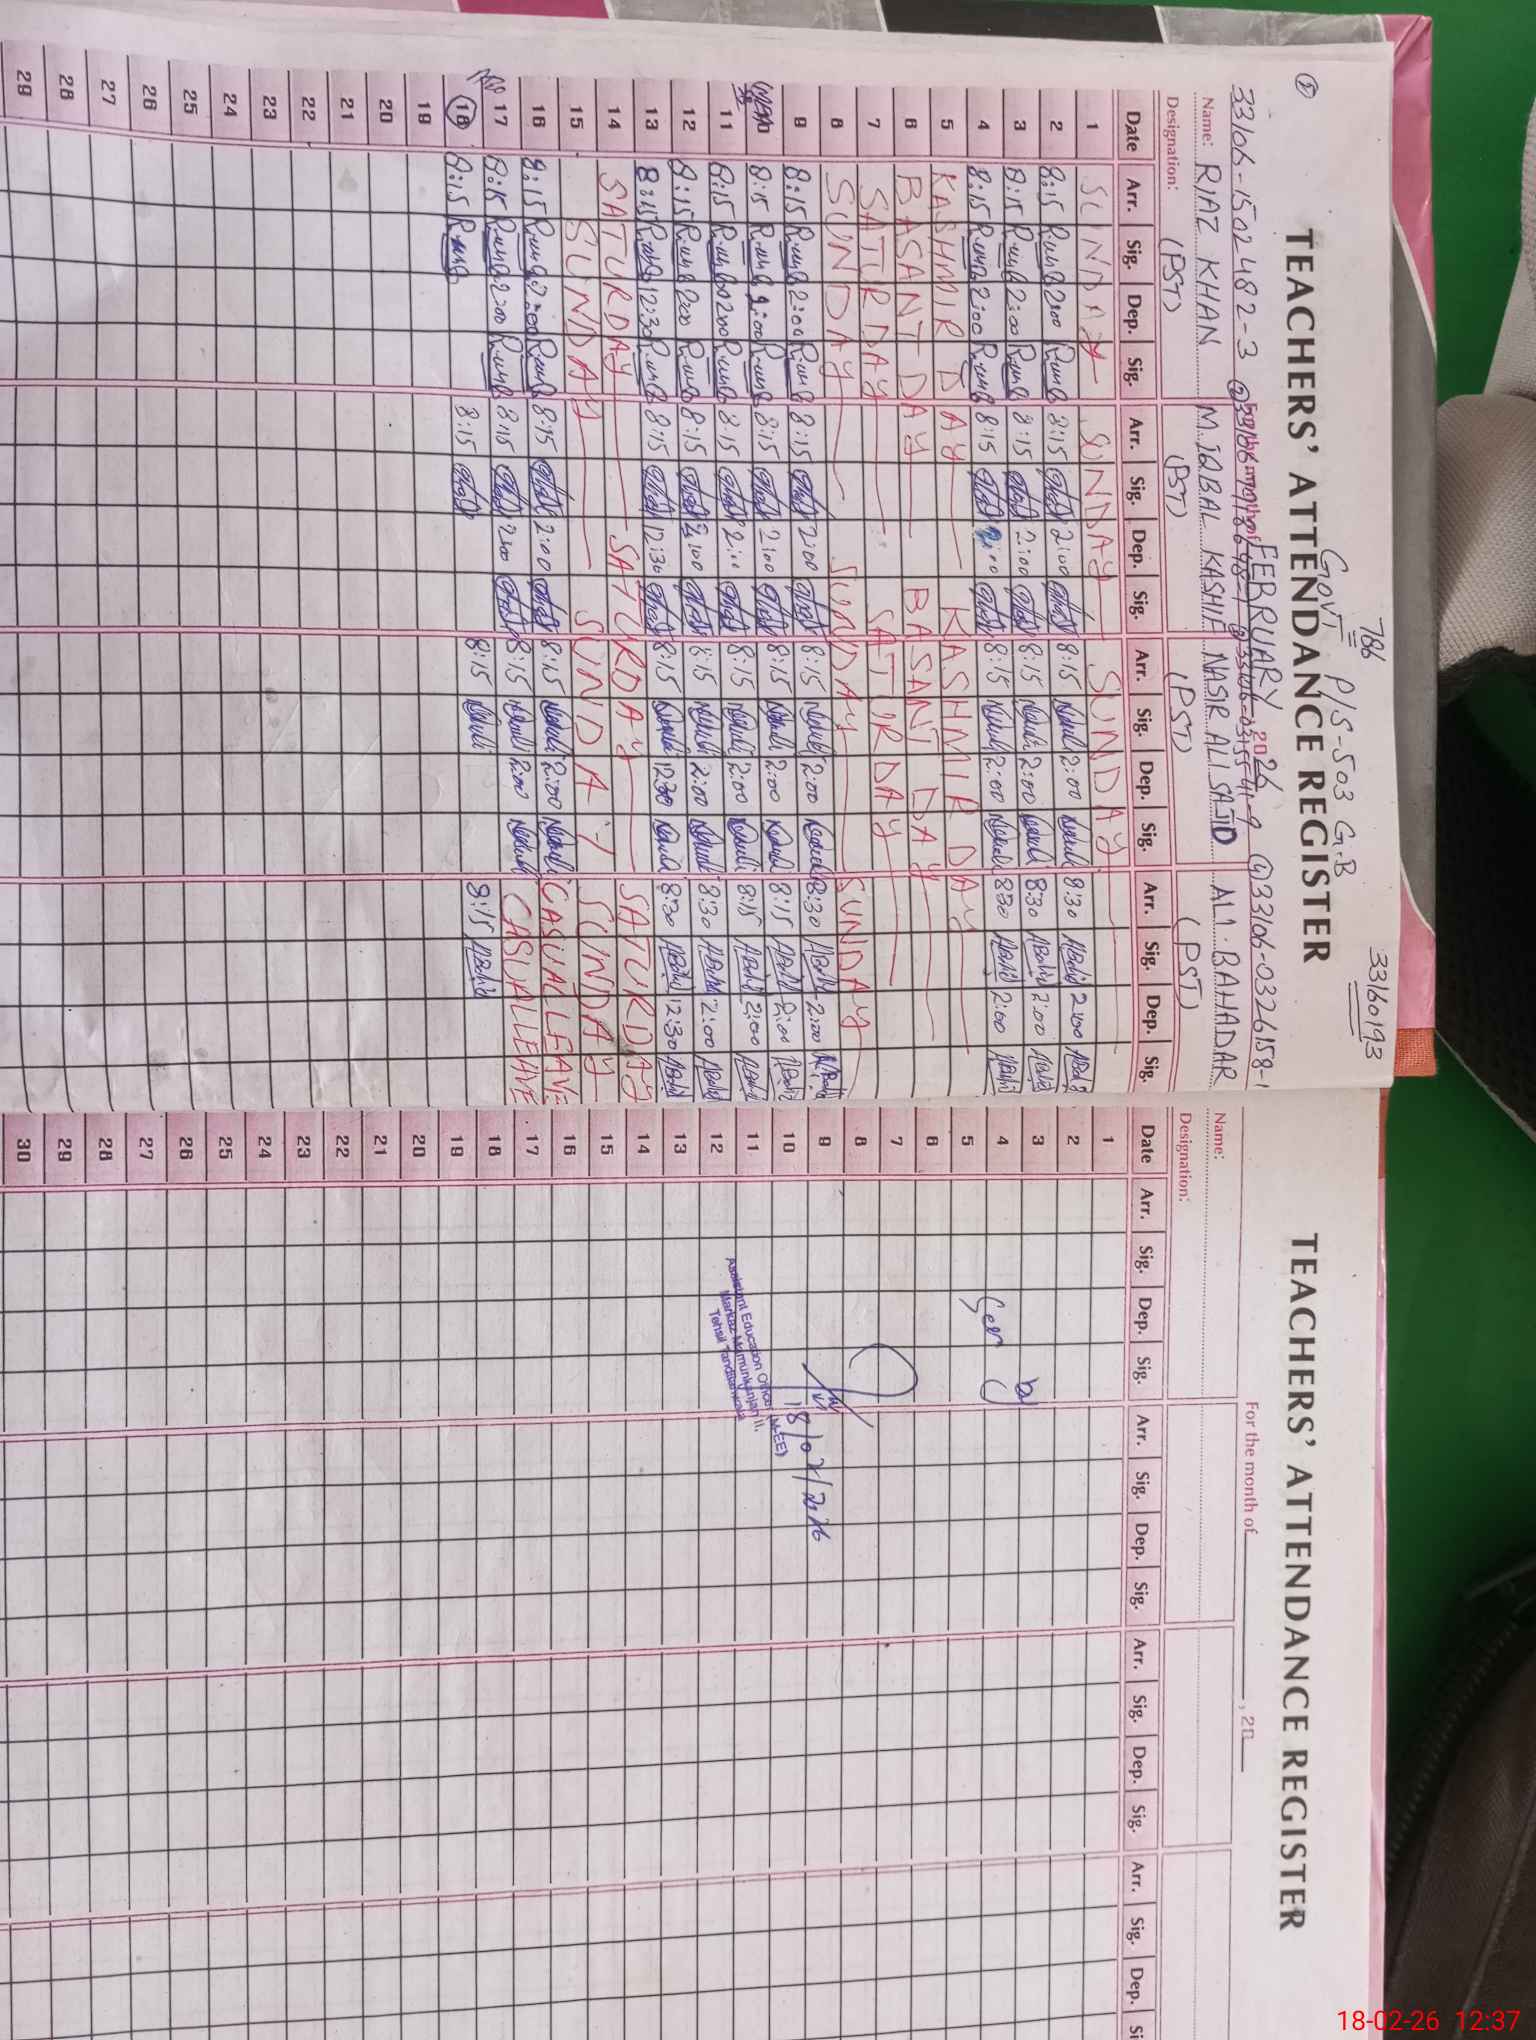 786
33160193
GOVT P/S-503 G.B
TEACHERS' ATTENDANCE REGISTER
FEBRUARY 2026
33106-1502482-3
33106-0326158-1
Name: RIAZ KHAN M.IQBAL KASHIF NASIR ALI SAJID ALI BAHADAR
Designation: (PST) (PST) (PST) (PST)
Date Arr. Sig. Dep. Sig. Arr. Sig. Dep. Sig. Arr. Sig. Dep. Sig. Arr. Sig. Dep. Sig.
1 SUNDAY SUNDAY SUNDAY
2 8:15 2:00 8:15 2:00 8:15 2:00 8:30 2:00
3 8:15 2:00 8:15 2:00 8:15 2:00 8:30 2:00
4 8:15 2:00 8:15 2:00 8:15 2:00 8:30 2:00
5 KASHMIR DAY KASHMIR DAY
6 BASANT DAY BASANT DAY
7 SATURDAY SATURDAY
8 SUNDAY SUNDAY SUNDAY
9 8:15 2:00 8:15 2:00 8:15 2:00 8:30 2:00
8:15 2:00 8:15 2:00 8:15 2:00 8:15 2:00
11 8:15 2:00 8:15 2:00 8:15 2:00 8:15 2:00
12 8:15 2:00 8:15 2:00 8:15 2:00 8:30 2:00
13 8:15 12:30 8:15 12:30 8:15 12:30 8:30 12:30
14 SATURDAY SATURDAY SATURDAY
15 SUNDAY SUNDAY SUNDAY
16 8:15 2:00 8:15 2:00 8:15 2:00 CASUAL LEAVE
17 8:15 2:00 8:15 2:00 8:15 2:00 CASUAL LEAVE
18 8:15 8:15 8:15 8:15
19
20
21
22
23
24
25
26
27
28
29
TEACHERS' ATTENDANCE REGISTER
For the month of , 20
Name:
Designation:
Date Arr. Sig. Dep. Sig. Arr. Sig. Dep. Sig. Arr. Sig. Dep. Sig. Arr. Sig. Dep. Si
1
2
3
4
5
6
7
8
9
10
11
12
13
14
15
16
17
18
19
20
21
22
23
24
25
26
27
28
29
30
18/02/2026
Assistant Education Officer (M-EE)
Markaz Mamunkanjan II,
Tehsil Tandlianwala
18-02-26 12:37